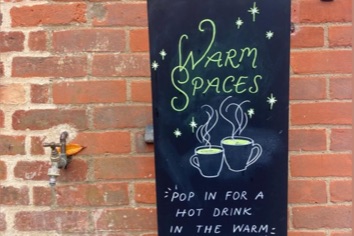 WARM
SPACES
POP IN FOR A
HOT DRINK
IN THE WARM